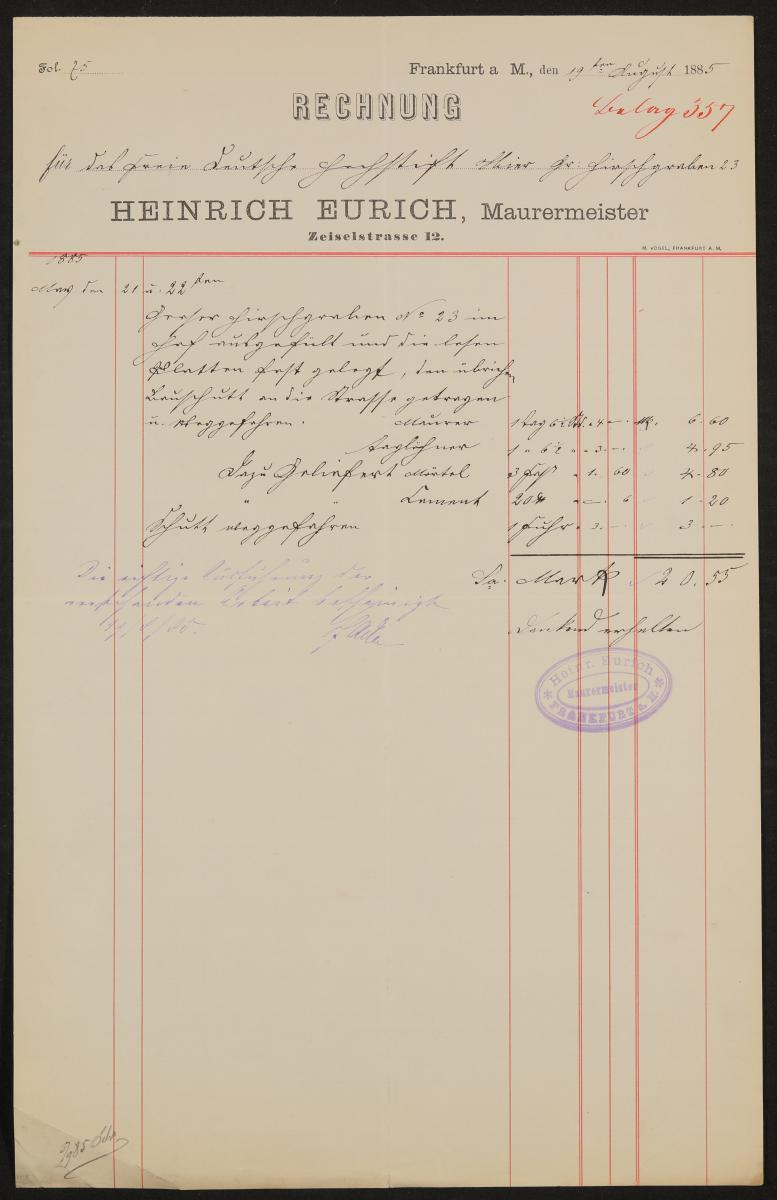 Fol. 75
Frankfurt a M., den 19ten August 1885
RECHNUNG
Belag 357
für das Freie Deutsche Hochstift Hier Gr. Hirschgraben 23
HEINRICH EURICH, Maurermeister
Zeiselstrasse 12.
M. VOGEL, FRANKFURT A. M.
1885
May den 21 u. 22ten
Großer Hirschgraben No 23 im
Hof ausgefült und die losen
Platten fest gelegt, den übrichen
Bauschutt an die Strasse getragen
u. weggefahren. Maurer 1 Tag 6½ Std. a 4 — Mk. 6.60
Taglöhner 1 " 6½ " " 3.— 4.95
Dazu Geliefert Mörtel 3 Faß " 1.60 4.80
" " Cement 20 ℔ " — 6 1.20
Schutt weggefahren 1 Fuhr a 3.— 3.—
Sa. Mark 20.55
Die richtige Ausführung der
vorstehenden Arbeit bescheinigt
Dankend erhalten
Heinr. Eurich
Maurermeister
FRANKFURT a. M.